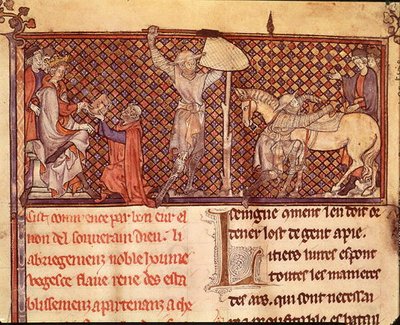 Cist commence par bon eur el
non del souverain dieu. li
abriegemenz noble homme
vegesce flave rene des esta
blissemenz apartenanz a che
enseingne coment len doit or
dener lost de gent a pie.
Li tierz livres espont
toutes les manieres
des ars, qui sont necessai